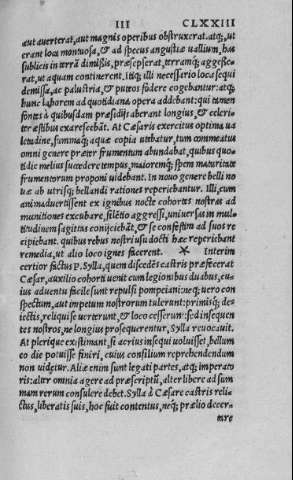 III CLXXIII
aut auerterat, aut magnis operibus obstruxerat. atq; ut
erant loca montuosa, & ad specus angustiæ uallium, has
sublicis in terrā dimißis, præsepserat, terramq; aggesse-
rat, ut aquam continerent. itiq; illi necessario loca sequi
demissa, ac palustria, & puteos fodere cogebantur: atq;
hunc laborem ad quotidiana opera addebant: qui tamen
fontes à quibusdam præsidijs aberant longius, & celeri-
ter æstibus exarescebāt. At Cæsaris exercitus optima ua
letudine, summaq; aquæ copia utebatur, tum commeatus
omni genere præter frumentum abundabat, quibus quo
tidie melius succedere tempus, maioremq; spem maturitate
frumentorum proponi uidebant. In nouo genere belli no
uæ ab utrisq; bellandi rationes reperiebantur. Illi, cum
animaduertissent ex ignibus nocte cohortes nostras ad
munitiones excubare, silētio aggressi, uniuersas in mul
titudinem sagittas conijciebāt, & se confestim ad suos re
cipiebant. quibus rebus nostri usu docti hæc reperiebant
remedia, ut alio loco ignes facerent. * Interim
certior factus P. Sylla, quem discedēs castris præfecerat
Cæsar, auxilio cohorti uenit cum legionibus duabus, cu-
ius aduentu facile sunt repulsi pompeiani: neq; uero con
spectum, aut impetum nostrorum tulerunt: primisq; de-
iectis, reliqui se uerterunt, & loco cesserunt: sed insequen
tes nostros, ne longius prosequerentur, Sylla reuocauit.
At plerique existimant, si acrius insequi uoluisset, bellum
eo die potuisse finiri. cuius consilium reprehendendum
non uidetur. Aliæ enim sunt legati partes, atq; imperato
ris: alter omnia agere ad præscriptū, alter libere ad sum
mam rerum consulere debet. Sylla à Cæsare castris reli-
ctus, liberatis suis, hoc fuit contentus, neq; prælio decer-
nere